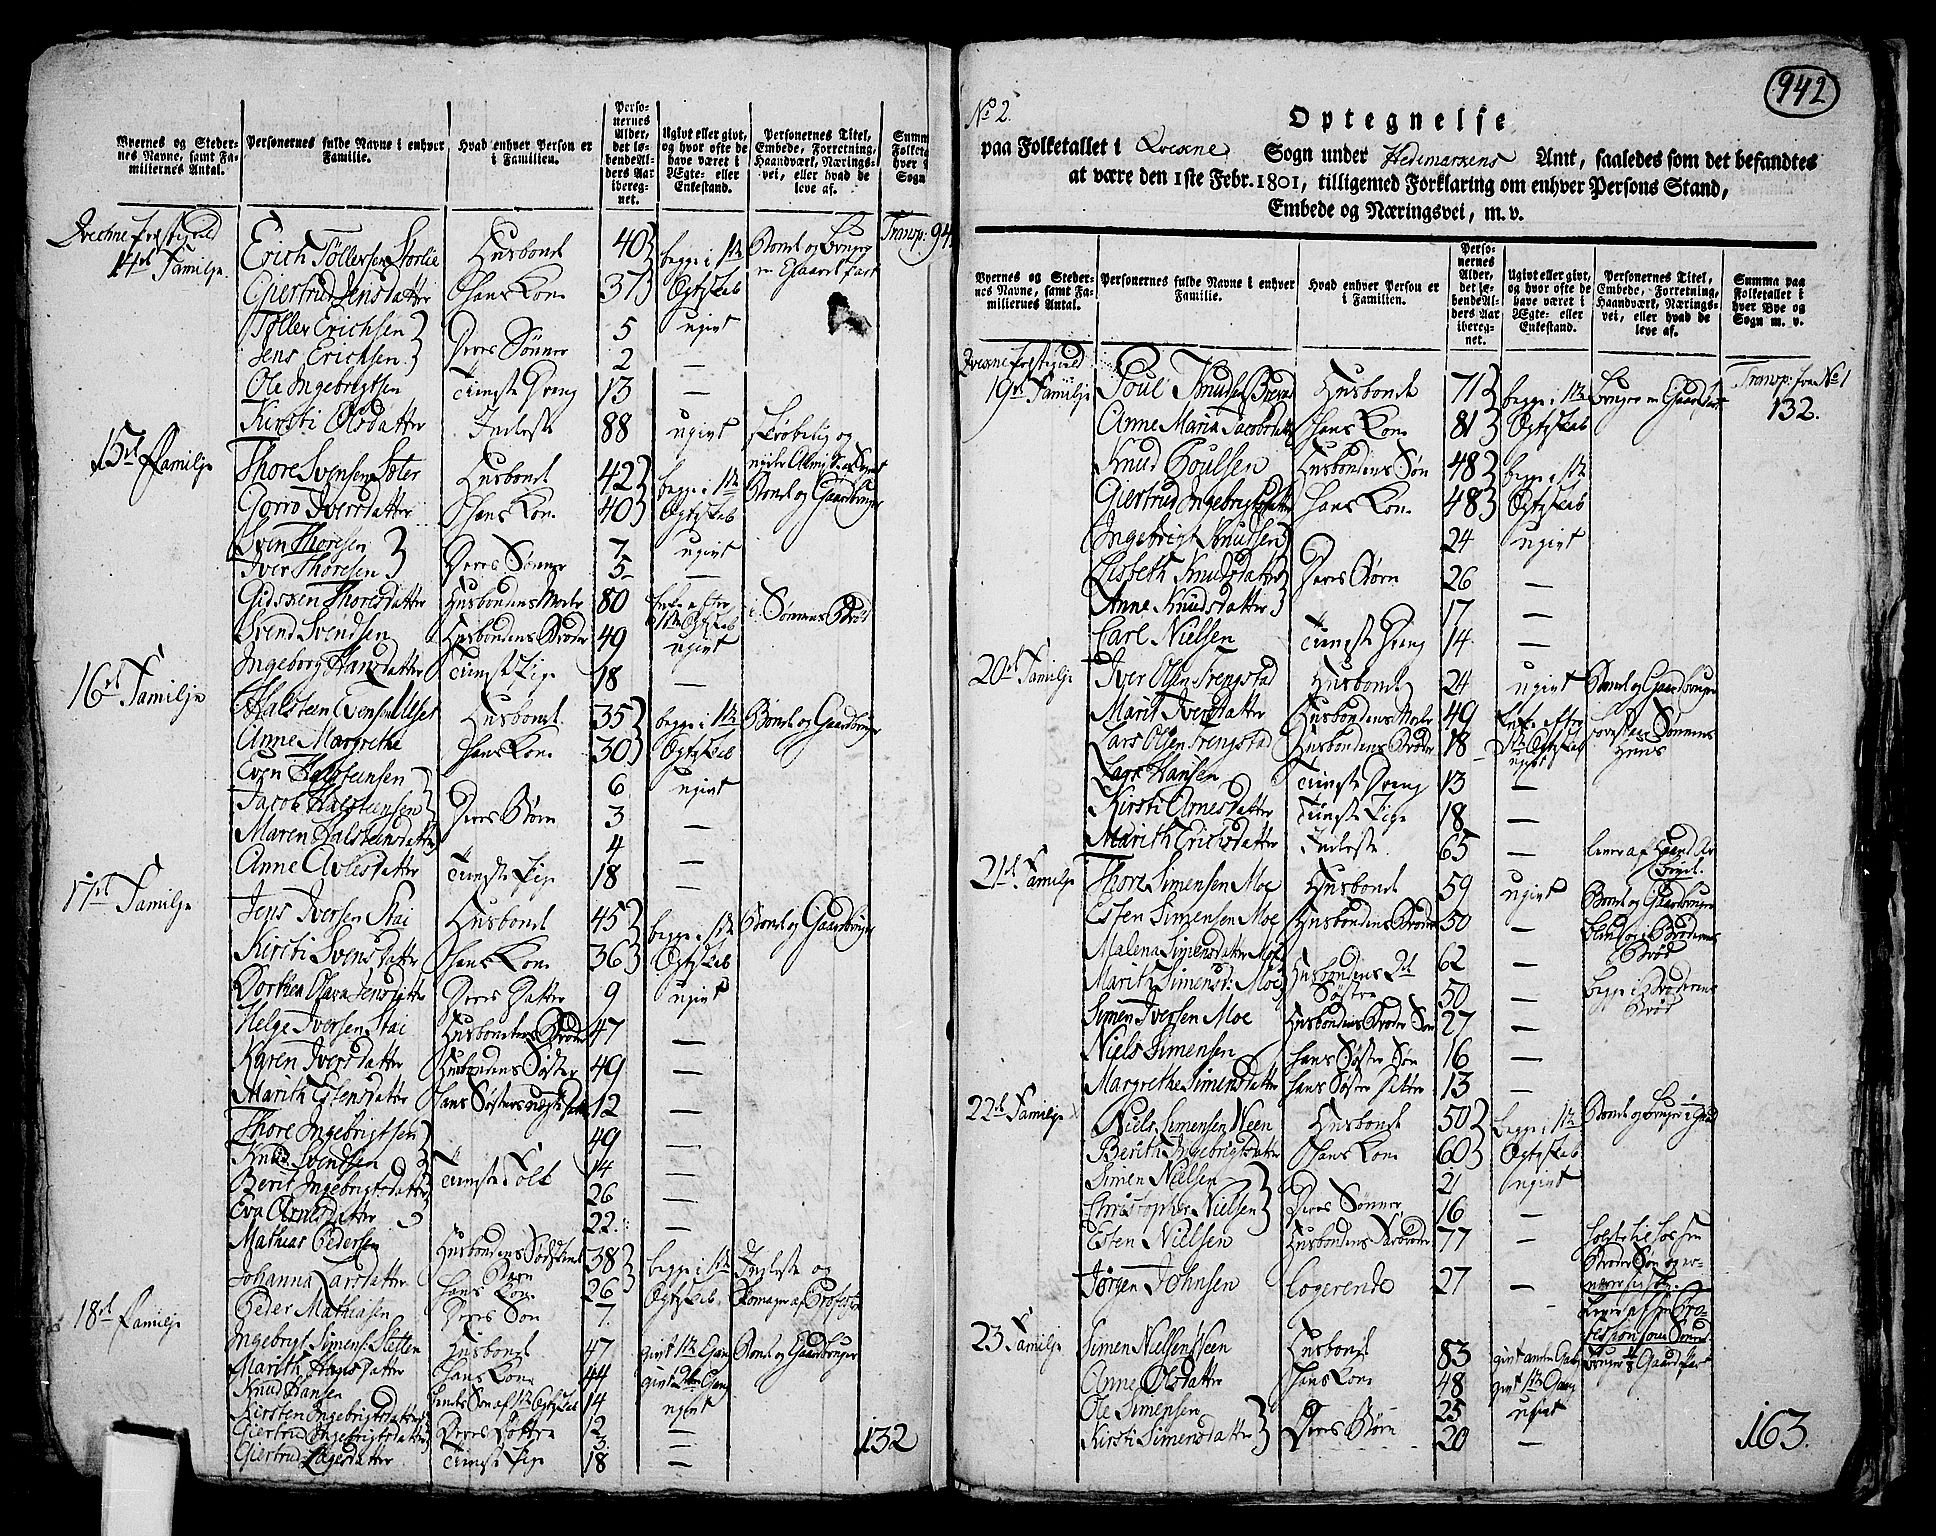 Byernes og Stedernes Navne, samt Familiernes Antal.
Personernes fulde Navne i enhver Familie.
Hvad enhver Person er i Familien.
Personernes Alder, det løbende Alders Aar iberegnet.
Ugivt eller givt, og hvor ofte de have været i Ægte- eller Enkestand.
Personernes Titel, Embede, Forretning, Haandværk, Næringsvei, eller hvad de leve af.
Transp: 94
Qvechne Præstegield
14de Familje. Erich Tøllersen Storlie Husbond 40 begge i 1te Bonde og bruger
Giertrud Jensdatter Hans Kone 37 Ægteskab en Gaard Part
Tøller Erichsen 5 ugivt
Jens Erichsen Deres Sønner 2 —
Ole Ingebrigtsen Tieneste Dreng 13 —
Kirsti Olsdatter Inderste 88 ugivt skrøbelig og
15de Familje nyder Almisse
Thore Svensen Sæter Husbond 42 begge i 1te Bonde og Gaardbruger
Gorro Iversdatter Hans Kone 40 Ægteskab
Sven Thoresen 7 ugivt
Iver Thoresen Deres Sønner 5 —
Gidsken Thoresdatter Husbondens Moder 80 Enke efter 1te Ægteskab i Sønnens Brød
Svend Svendsen Husbondens Broder 49 ugivt
Ingeborg Hansdatter Tieneste Pige 18 —
16de Familje
Halsteen Evensen Uset Husbond 35 begge i 1te Bonde og Gaardbruger
Anne Margrethe Hans Kone 30 Ægteskab
Even Halsteensen 6 ugivt
Jacob Halsteensen Deres Børn 3 —
Maren Halsteensdatter 4 —
Anne Avlesdatter Tieneste Pige 18 —
17de Familje
Jens Iversen Stai Husbond 45 begge i 1te Bonde og Gaardbruger
Kirsti Svensdatter Hans Kone 36 Ægteskab
Dorthea Olava Jensdatter Deres Datter 9 ugivt
Helge Iversen Stai Husbondens Broder 47 —
Karen Iversdatter Husbondens Søster 49 —
Marith Estensdatter Hans Søsters uægte Datter 12 —
Thore Ingebrigtsen 49 —
Knud Svendsen Tieneste Folk 14 —
Berit Ingebrigtsdatter 26 —
Eva Arnesdatter 22 —
Mathias Pedersen Husbondens Sødskende Barn 38 begge i 1te Inderste og
Johanna Larsdatter Hans Kone 26 Ægteskab Skomager af Profession
Peder Mathiasen Deres Søn 7
18de Familje
Ingebrigt Simens: Stetten Husbond 47 givt 1te Gang Bonde og Gaardbruger
Marith Hansdatter Hans Kone 44 givt 2den Gang
Knud Hansen Hendes Søn af 1te Ægteskab 14 ugivt
Kirsten Ingebrigtsdatter 12 —
Giertrud Ingebrigtsdatter Deres Døttre 3 —
Giertrud Lagesdatter Tieneste Pige 18 —
132
942
No 2.
Optegnelse
paa Folketallet i Qvexne Sogn under Hedemarkens Amt, saaledes som det befandtes
at være den 1ste Febr. 1801, tilligemed Forklaring om enhver Persons Stand,
Embede og Næringsvei, m. v.
Byernes og Stedernes Navne, samt Familiernes Antal.
Personernes fulde Navne i enhver Familie.
Hvad enhver Person er i Familien.
Personernes Alder, det løbende Alders Aar iberegnet.
Ugivt eller givt, og hvor ofte de have været i Ægte- eller Enkestand.
Personernes Titel, Embede, Forretning, Haandværk, Næringsvei, eller hvad de leve af.
Summa paa Folketallet i hver Bye og Sogn m. v.
Qvexne Præstegield
Transp: fra No 1 132.
19de Familje Poul Knudsen Husbond 71 begge i 1te bruger en Gaard Part
Anne Maria Jacobsdatter Hans Kone 81 Ægteskab
Knud Poulsen Husbondens Søn 48 begge i 1te
Giertrud Ingebrigtsdatter Hans Kone 48 Ægteskab
Ingebrigt Knudsen 24 ugivt
Lisbeth Knudsdatter Deres Børn 26 —
Anne Knudsdatter 17 —
Carl Nielsen Tieneste Dreng 14 —
20de Familje Iver Olsen Trengstad Husbond 24 ugivt Bonde og Gaardbruger
Marit Iversdatter Husbondens Moder 49 Enke efter 1te Ægteskab forestaar Sønnens Huus
Lars Olsen Trengstad Husbondens Broder 18 ugivt
Lars Hansen Tieneste Dreng 13 —
Kirsti Arnesdatter Tieneste Pige 18 —
Marith Erichsdatter Inderste 65 — lever af Haand Arbeyde
21de Familje Thore Simensen Moe Husbond 59 ugivt Bonde og Gaardbruger
Esten Simensen Moe Husbondens Broder 50 — blind og i Broderens Brød
Malena Simensdatter Moe 62 —
Marith Simensd: Moe Husbondens 2de Søstre 50 — begge i Broderens Brød
Simen Iversen Moe Husbondens Broder Søn 27 —
Niels Simensen Hans Søster Søn 16 —
Margrethe Simensdatter Hans Søster Datter 13 —
22de Familje Niels Simensen Neen Husbond 50 begge i 1te Bonde og bruger
Berith Ingebrigtsdatter Hans Kone 60 Ægteskab
Simen Nielsen 21 ugivt
Christopher Nielsen Deres Sønner 16 —
Esten Nielsen Husbondens Farbroder 77
Broder Søn
Jørgen Johnsen Logerende 27 — lever af sin Profession som
23 Familje Simen Nielsen Neen Husbond 83 givt anden Gang bruger Gaard Part
Anne Olsdatter Hans Kone 48 givt 1te Gang
Ole Simensen 25 ugivt
Kirsti Simensdatter Deres Børn 20 —
163.